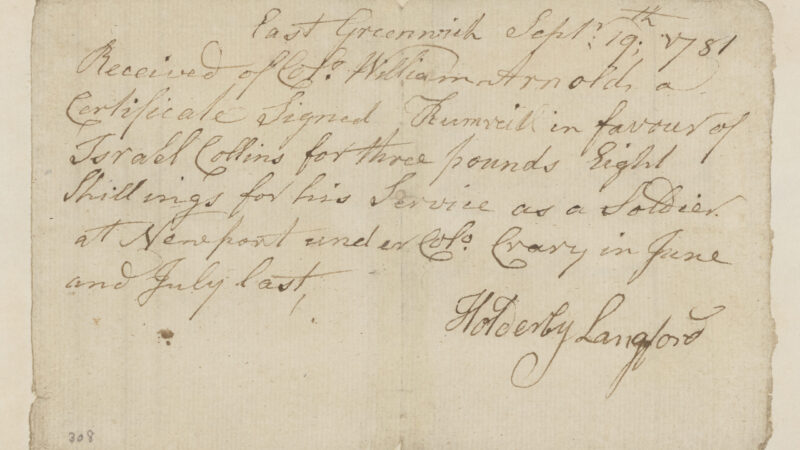 East Greenwich Sept.r 19.th 1781
Received of Col.o William Arnold, a
Certificate Signed Rumreill in favour of
Israel Collins for three pounds Eight
Shillings for his Service as a Soldier
at Newport under Col.o Crary in June
and July last,
Holderby Langford
308